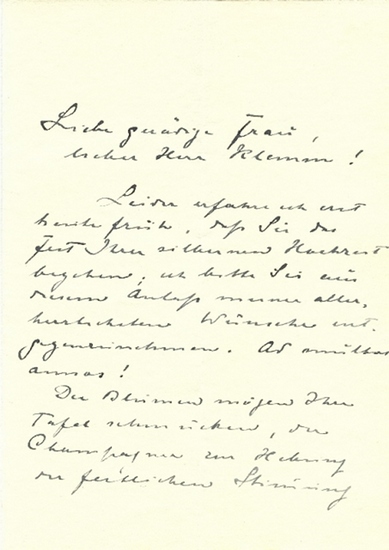 Liebe gnädige Frau,
lieber Herr Klemm!
Leider erfahre ich erst
heute früh, daß Sie das
Fest Ihrer silbernen Hochzeit
begehen, ich bitte Sie aus
diesem Anlaß meine aller-
herzlichsten Wünsche ent-
gegenzunehmen. Ad multos
annos!
Die Blumen mögen Ihre
Tafel schmücken, der
Champagner zur Hebung
der festlichen Stimmung